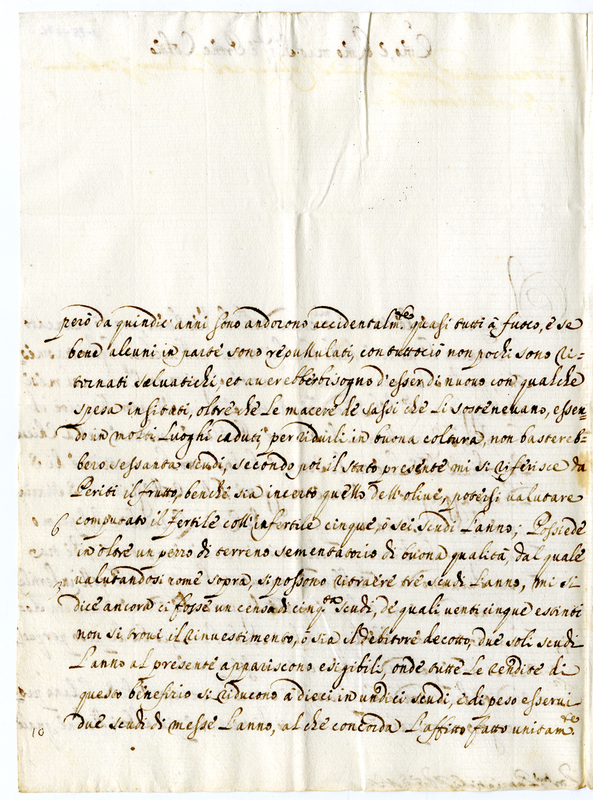 però da quindic' anni sono andorono accidentalm.te quasi tutti à fuoco, e se
bene alcuni in parte sono repullulati, con tuttociò non pochi sono ri-
tornati selvatichi, et averebber bisogno d'esser di nuovo con qualche
spesa insitati, oltre che le macere de sassi che li sostenevano, essen-
do in molti luoghi caduti, per ridurli in buona coltura, non bastereb-
bero sessanta scudi, secondo poi il stato presente mi si riferisce da
Periti il frutto, benche sia incerto quello dell'olive, potersi valutare
computato il fertile coll'infertile cinque, ò sei scudi l'anno; Possiede
in oltre un pezzo di terreno sementatorio di buona qualità, dal quale
valutandosi come sopra, si possono ritraere tre scudi l'anno, mi si
dice ancora ci fosse un censo di cinq.ta scudi, de quali venti cinque estinti
non si trovi il rinvestimento, ò sia il debitore decotto, due soli scudi
l'anno al presente appariscono esigibili, onde tutte le rendite di
questo benefizio si riducono à dieci in undici scudi, e di peso esservi
due scudi di messe l'anno, al che concorda l'affitto fatto unitam.te
10